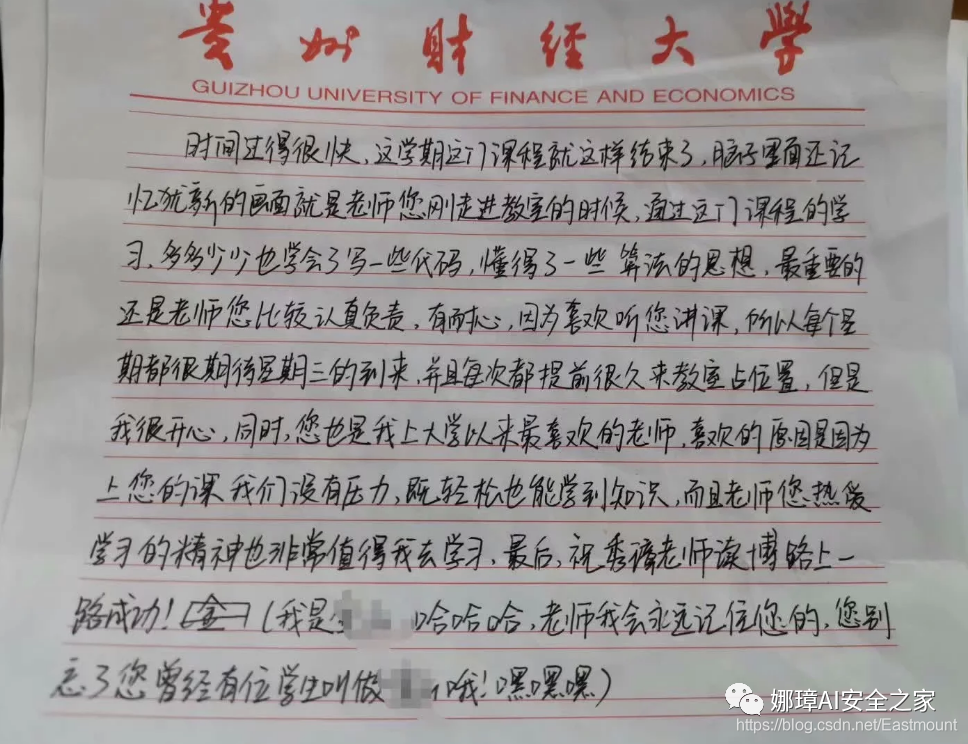 贵州财经大学
GUIZHOU UNIVERSITY OF FINANCE AND ECONOMICS
时间过得很快，这学期这门课程就这样结束了，脑子里面还记
忆犹新的画面就是老师您刚走进教室的时候，通过这门课程的学
习，多多少少也学会了写一些代码，懂得了一些算法的思想，最重要的
还是老师您比较认真负责，有耐心，因为喜欢听您讲课，所以每个星
期都很期待星期三的到来，并且每次都提前很久来教室占位置，但是
我很开心，同时，您也是我上大学以来最喜欢的老师，喜欢的原因是因为
上您的课我们没有压力，既轻松也能学到知识，而且老师您热爱
学习的精神也非常值得我去学习，最后，祝秀璋老师读博路上一
路成功！（我是 哈哈哈，老师我会永远记住您的，您别
忘了您曾经有位学生叫做 哦！嘿嘿嘿）
娜璋AI安全之家
https://blog.csdn.net/Eastmount